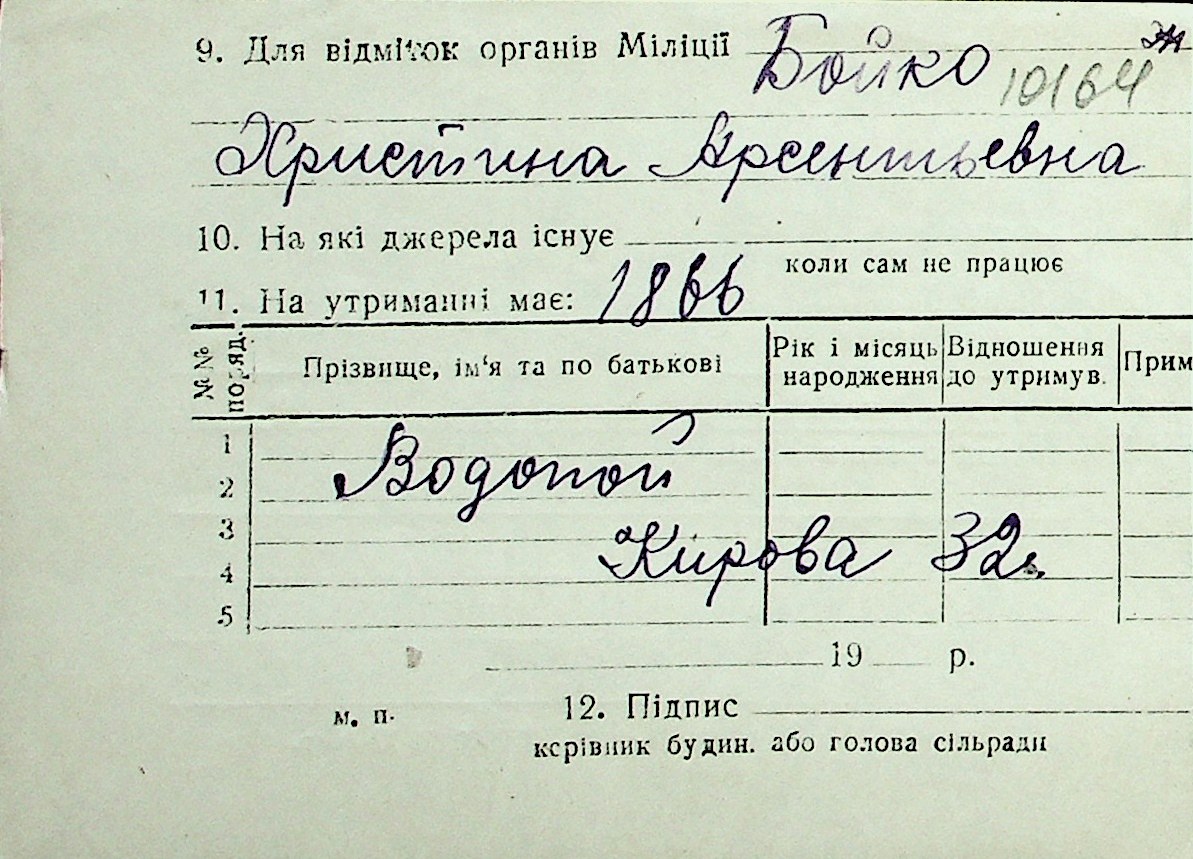 9. Для відміток органів Міліції Бойко 10164
Христина Арсентьевна
10. На які джерела існує
коли сам не працює
11. На утриманні має: 1866
№ № поряд. Прізвище, ім‘я та по батькові Рік і місяць народження Відношення до утримув. Прим
1
2 Водопой
3
4 Кирова 32
5
19 р.
м. п. 12. Підпис
керівник будин. або голова сільради